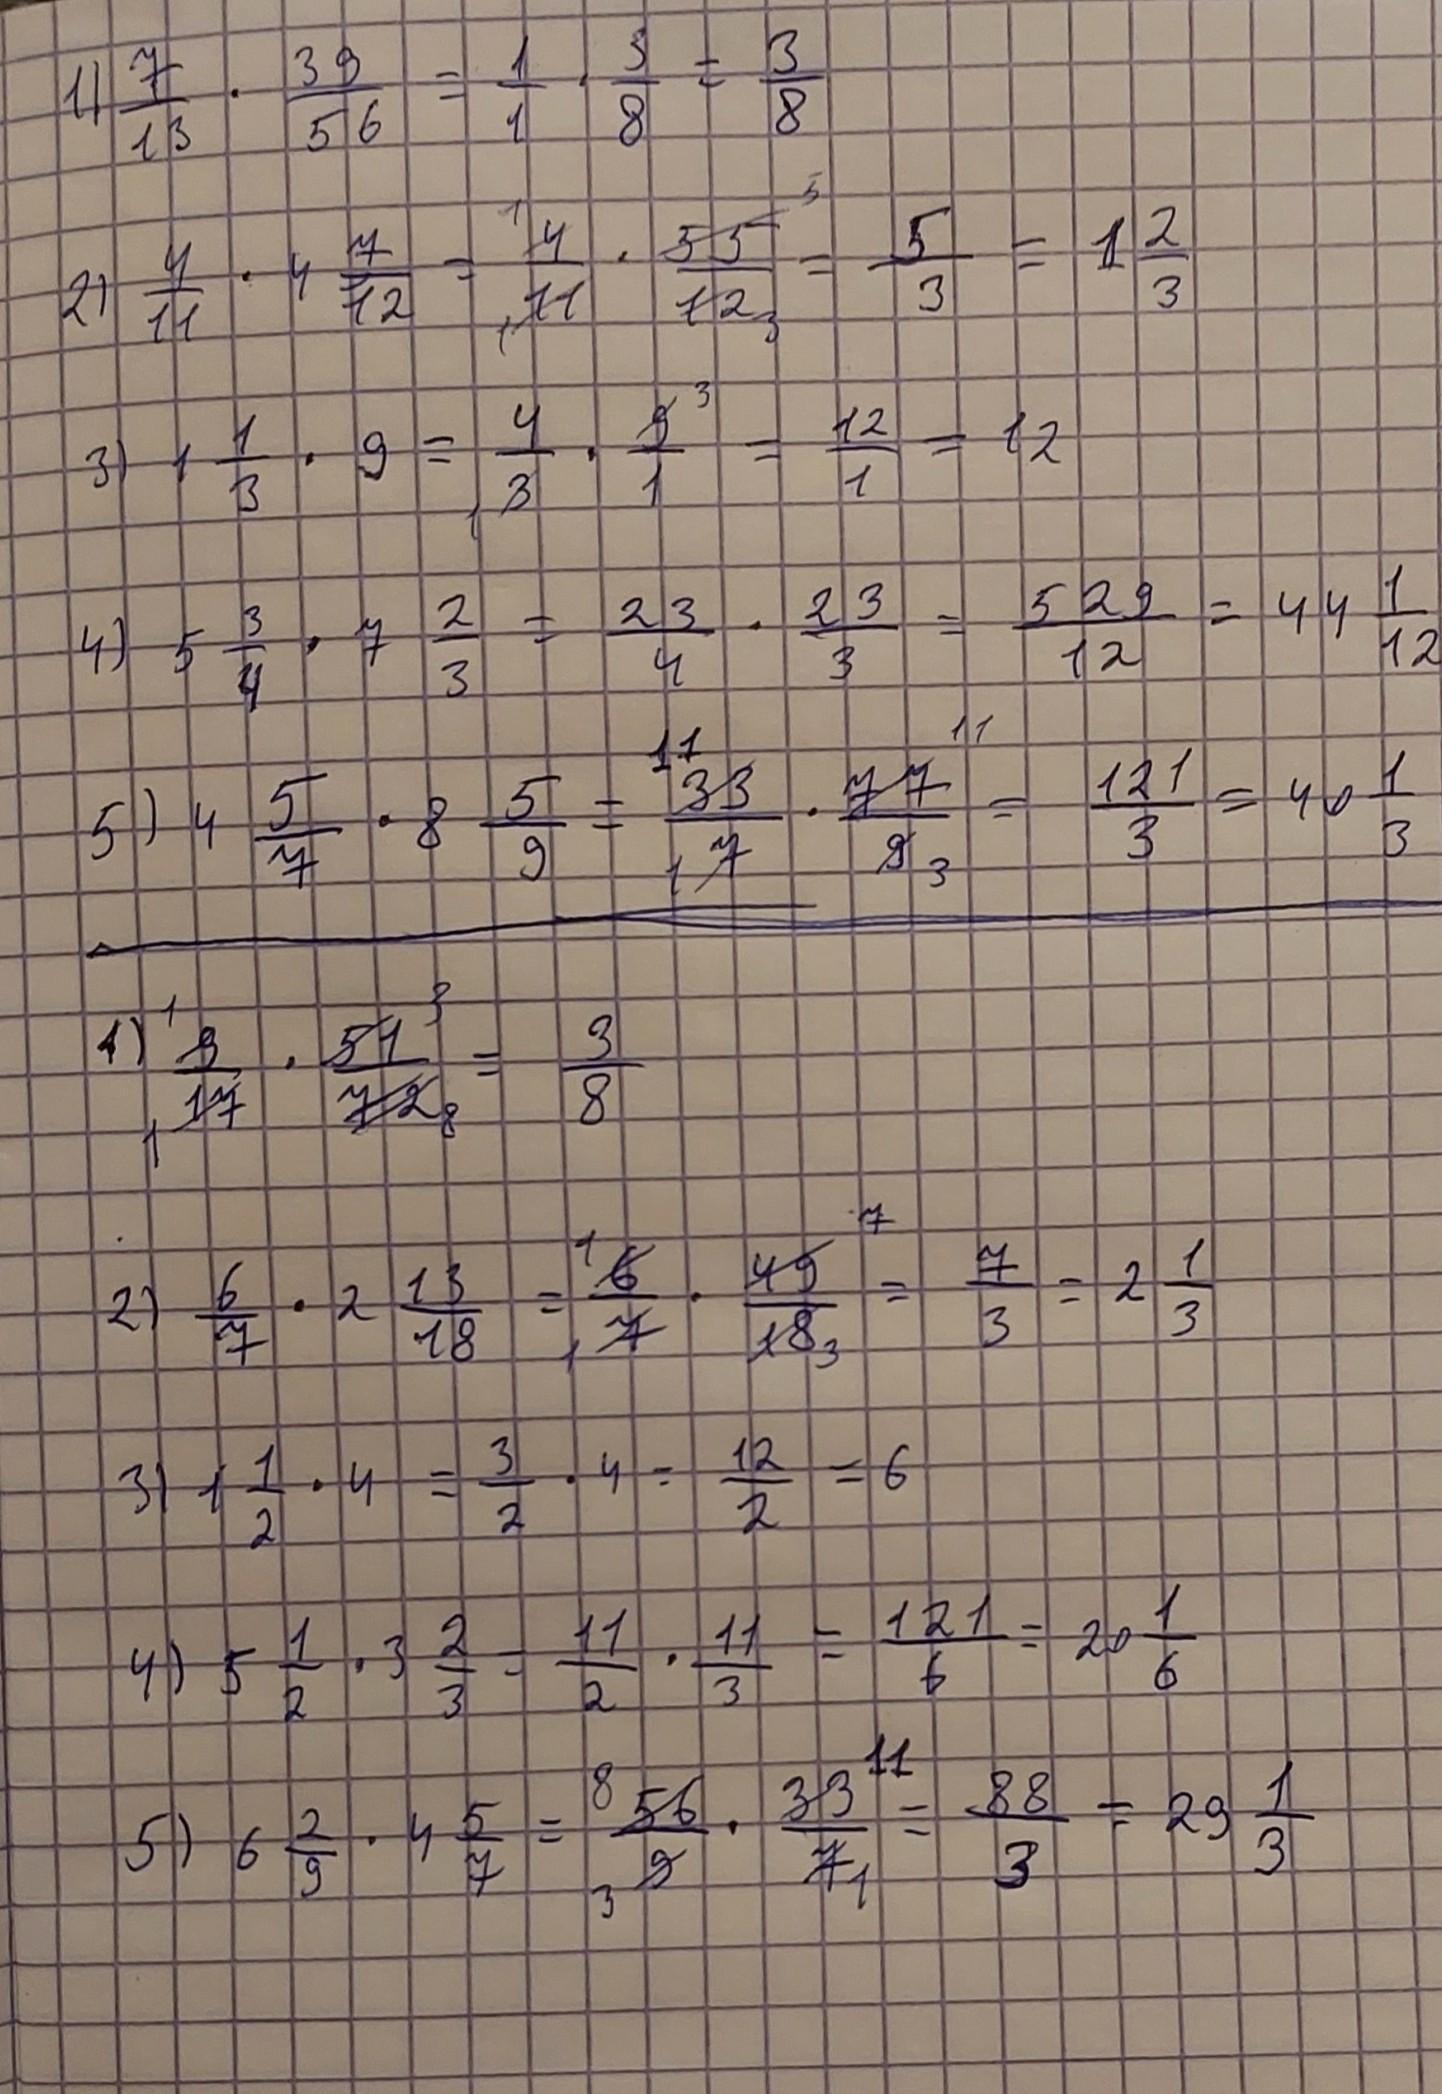 1) 7/13 · 39/56 = 1/1 · 3/8 = 3/8
2) 4/11 · 4 7/12 = 1 4/11 1 · 55/12 5 3 = 5/3 = 1 2/3
3) 1 1/3 · 9 = 4/3 1 · 9/1 3 = 12/1 = 12
4) 5 3/4 · 7 2/3 = 23/4 · 23/3 = 529/12 = 44 1/12
5) 4 5/7 · 8 5/9 = 11 33/7 1 · 77/9 11 3 = 121/3 = 40 1/3
1) 1 9/17 1 · 51/72 3 8 = 3/8
2) 6/7 · 2 13/18 = 1 6/7 1 · 49/18 7 3 = 7/3 = 2 1/3
3) 1 1/2 · 4 = 3/2 · 4 = 12/2 = 6
4) 5 1/2 · 3 2/3 = 11/2 · 11/3 = 121/6 = 20 1/6
5) 6 2/9 · 4 5/7 = 8 56/9 3 · 33/7 11 1 = 88/3 = 29 1/3